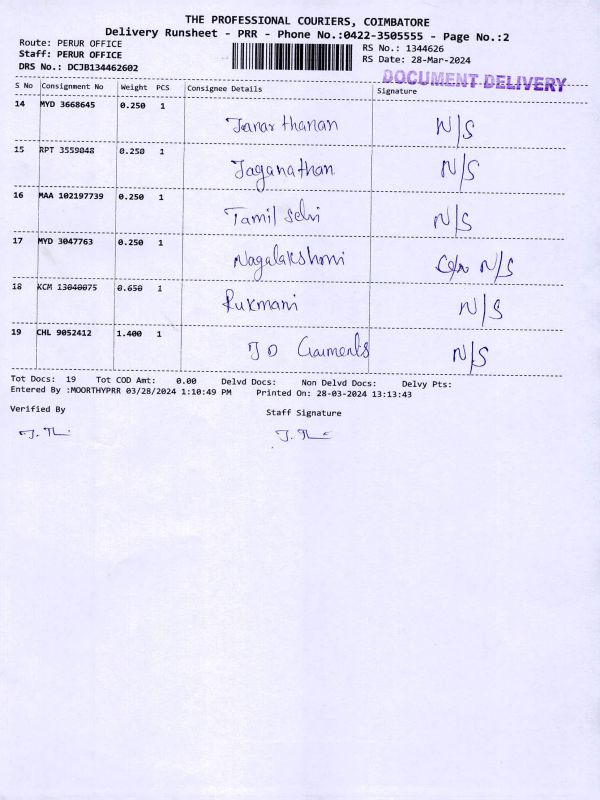 THE PROFESSIONAL COURIERS, COIMBATORE
Delivery Runsheet - PRR - Phone No.:0422-3505555 - Page No.:2
Route: PERUR OFFICE
Staff: PERUR OFFICE
DRS No.: DCJB134462602
RS No.: 1344626
RS Date: 28-Mar-2024
DOCUMENT DELIVERY
S No Consignment No Weight PCS Consignee Details Signature
14 MYD 3668645 0.250 1
Janarthanan N/S
15 RPT 3559048 0.250 1
Jaganathan N/S
16 MAA 102197739 0.250 1
Tamil selvi N/S
17 MYD 3047763 0.250 1
Nagalakshmi N/S
18 KCM 13040075 0.650 1
Rukmani N/S
19 CHL 9052412 1.400 1
JD Garments N/S
Tot Docs: 19 Tot COD Amt: 0.00 Delvd Docs: Non Delvd Docs: Delvy Pts:
Entered By :MOORTHYPRR 03/28/2024 1:10:49 PM Printed On: 28-03-2024 13:13:43
Verified By Staff Signature